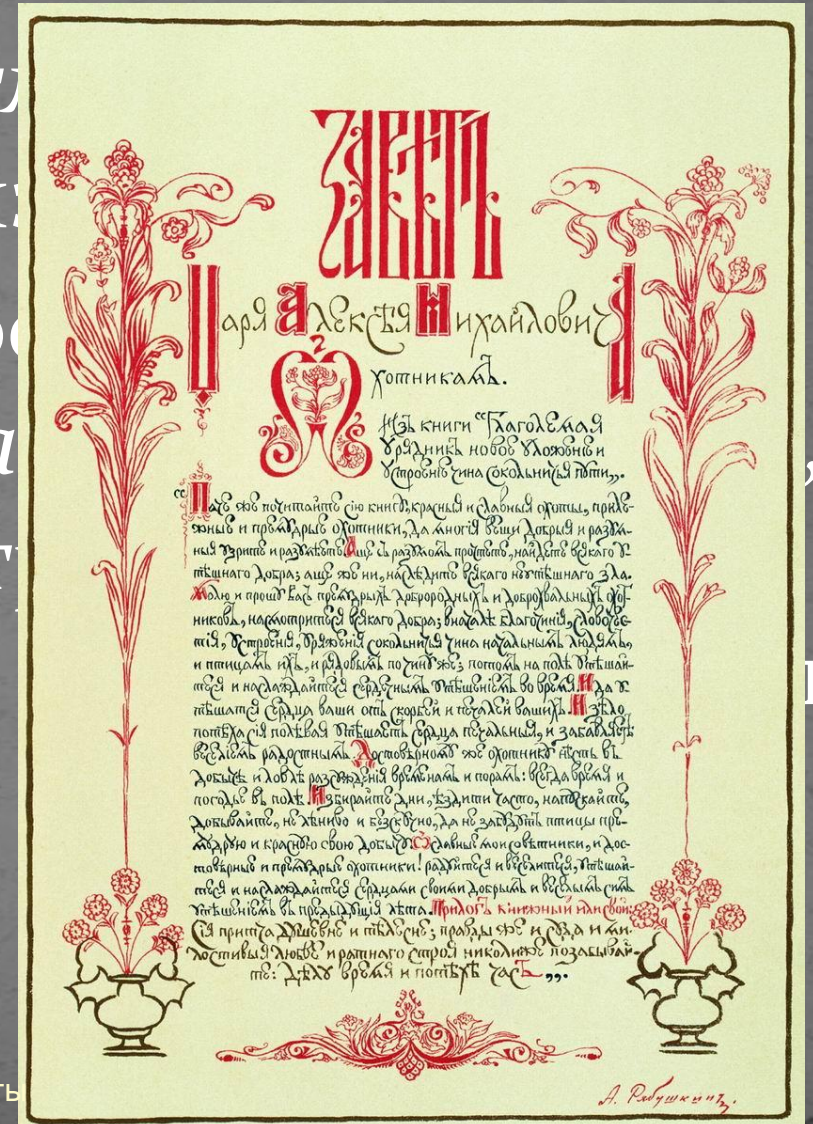 ЗАВѢТЪ
Царя Алексѣя Михайловича
охотникамъ.
Изъ книги "Глаголемая
Урядникъ новое уложеніе и
устроеніе чина сокольничья пути„.
"Паче же почитайте сію книгу, красныя и славныя охоты, приле-
жные и премудрые охотники, да многія вещи добрыя и разум-
ныя узрите и разумѣете. Аще съ разумомъ прочтете, найдете всякаго у-
тѣшнаго добра; аще же ни, наслѣдите всякаго неутѣшнаго зла.
Молю и прошу васъ премудрыхъ доброродныхъ и доброхвальныхъ охот-
никовъ, насмотритеся всякаго добра; вначалѣ благочинія, славочес-
тія, устроенія, уряженія сокольничья чина начальнымъ людямъ,
и птицамъ ихъ, и рядовымъ по чину же; потомъ на полѣ утѣшай-
теся и наслаждайтеся сердечнымъ утѣшеніемъ во время. И да у-
тѣшатся сердца ваши отъ скорбей и печалей вашихъ. И зѣло
потѣха сія полевая утѣшаетъ сердца печальныя, и забавляетъ
веселіемъ радостнымъ. Достовѣрному же охотнику нѣсть въ
добычѣ и ловлѣ разсужденія временамъ и порамъ: всегда время и
погодье въ полѣ. Избирайте дни, ѣздити часто, напускайте,
добывайте, не лѣниво и безскучно, да не забудутъ птицы пре-
мудрую и красную свою добычу. О славные мои совѣтники, и дос-
товѣрные и премудрые охотники! радуйтеся и веселитеся, утѣшай-
теся и наслаждайтеся сердцами своими добрымъ и веселымъ симъ
утѣшеніемъ въ предыдущія лѣта. Прилогъ книжный или свой:
Сія притча душевне и тѣлесне; правды же и суда и ми-
лостивыя любве и ратнаго строя николиже позабывай-
те: дѣлу время и потѣхѣ часъ„.
А. Рябушкинъ.